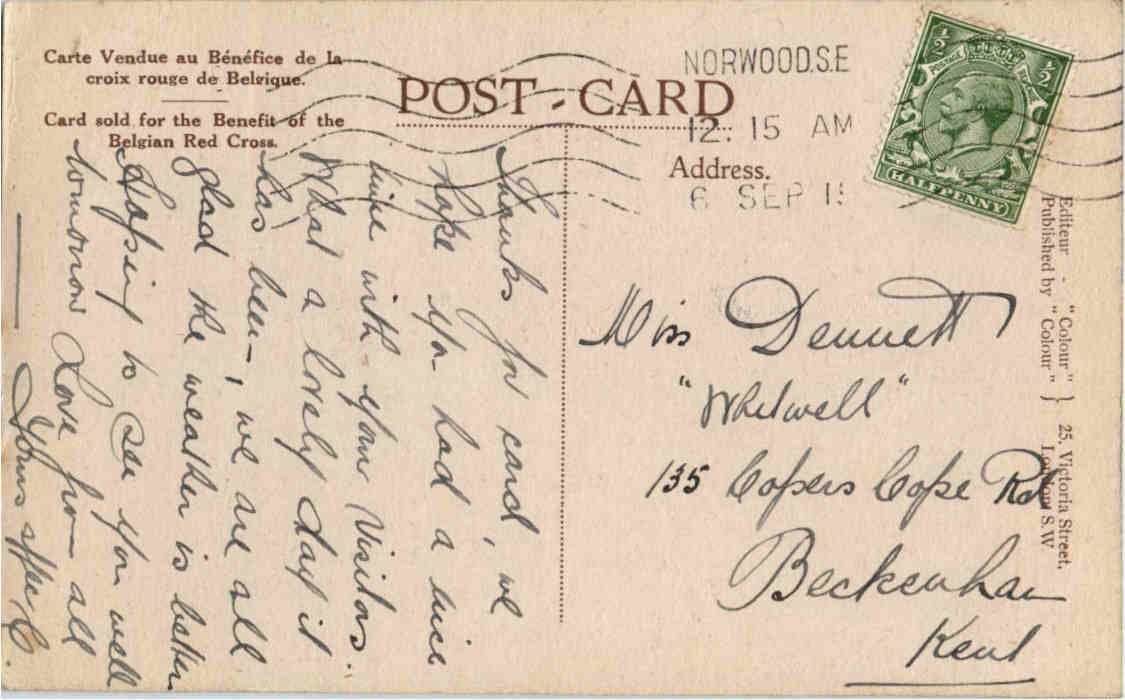 Carte Vendue au Bénéfice de la
croix rouge de Belgique.
Card sold for the Benefit of the
Belgian Red Cross.
POST - CARD
NORWOOD.S.E
12. 15 AM
6 SEP 15
Address.
½ POSTAGE REVENUE ½
HALFPENNY
Thanks for card, we
hope you had a nice
time with your visitors.
What a lovely day it
has been, we are all
glad the weather is better
Hoping to see you well
tomorrow Love from all
Yours affec C.
Miss Dennett
"Whitwell"
135 Copers Cope Rd
Beckenham
Kent
Editeur - "Colour" } 25, Victoria Street,
Published by "Colour" } London S.W